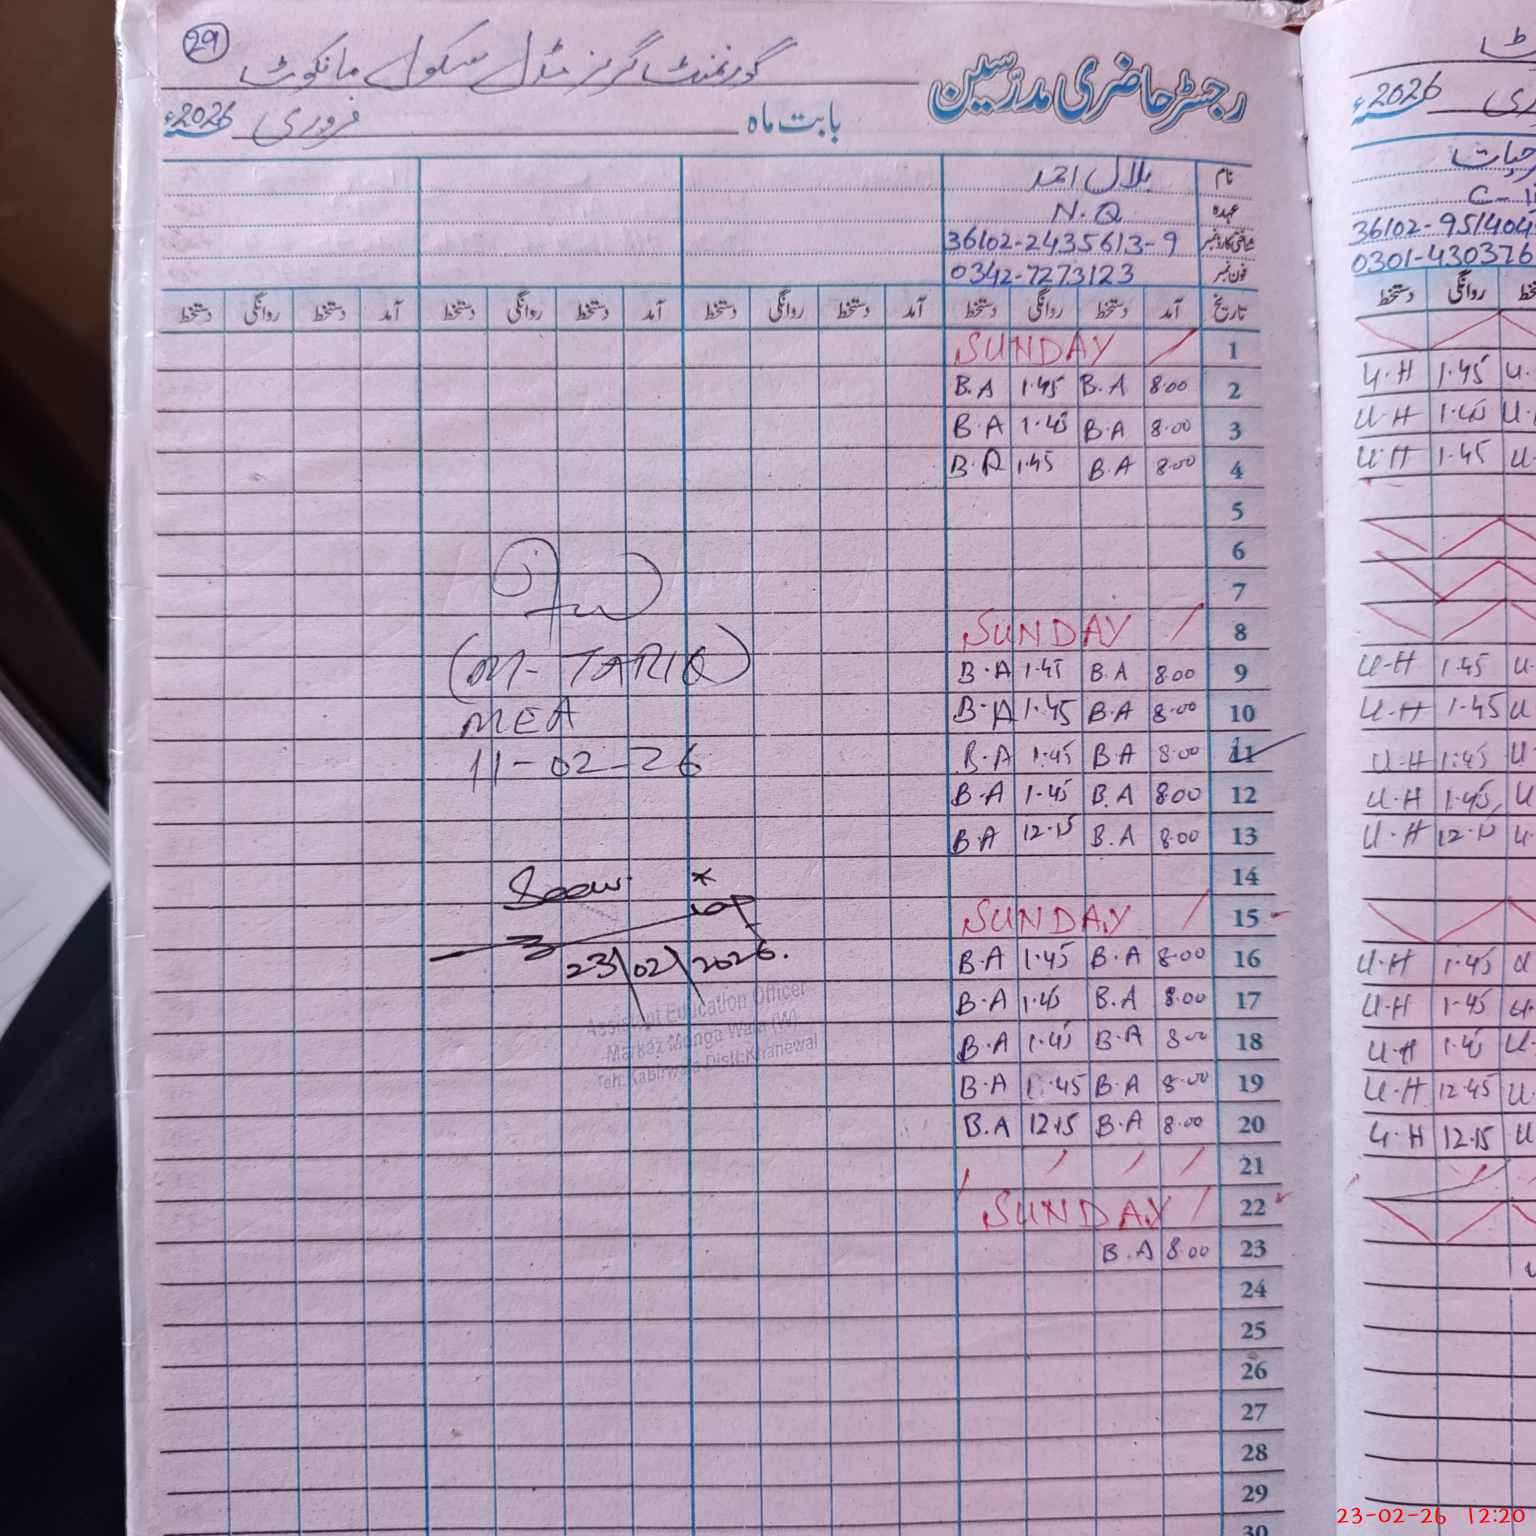 29
گورنمنٹ گرلز مڈل سکول مانکوٹ
رجسٹر حاضری مدرسین
بابت ماہ فروری 2026ء
نام بلال احمد
عہدہ N.Q
شناختی کارڈ نمبر 36102-2435613-9
فون نمبر 0342-7273123
تاریخ آمد دستخط روانگی دستخط آمد دستخط روانگی دستخط آمد دستخط روانگی دستخط
1 SUNDAY
2 8.00 B.A 1.45 B.A
3 8.00 B.A 1.45 B.A
4 8.00 B.A 1.45 B.A
5
6
7
8 SUNDAY
9 8.00 B.A 1.45 B.A
10 8.00 B.A 1.45 B.A
11 8.00 B.A 1.45 B.A
12 8.00 B.A 1.45 B.A
13 8.00 B.A 12.15 B.A
14
15 SUNDAY
16 8.00 B.A 1.45 B.A
17 8.00 B.A 1.45 B.A
18 8.00 B.A 1.45 B.A
19 8.00 B.A 1.45 B.A
20 8.00 B.A 12.15 B.A
21
22 SUNDAY
23 8.00 B.A
24
25
26
27
28
29
30
(M-TARIQ)
MEA
11-02-26
Seen
23/02/2026.
Assistant Education Officer
Markaz Monga Wala (W)
Teh: Kabirwala Distt: Khanewal
2026ء
C-
36102-951404
0301-430376
دستخط روانگی
U.H 1.45 U.
U.H 1.45 U.
U.H 1.45 U
U.H 1.45 U.
U.H 1.45 U
U.H 1.45 U.
U.H 1.45 U
U.H 12.15 U.
U.H 1.45 U
U.H 1.45 U.
U.H 1.45 U.
U.H 12.45 U.
U.H 12.15 U
23-02-26 12:20